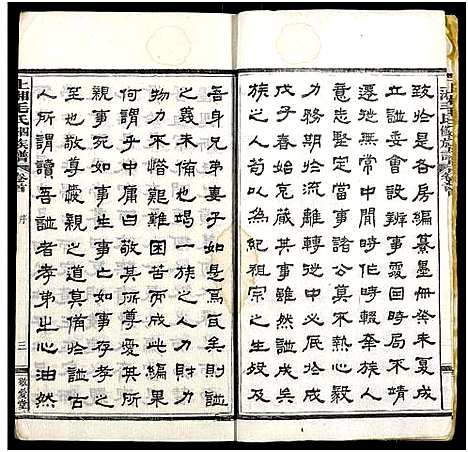 致恰是各房編纂墨冊癸未夏成
立譜委會設辦事處因時局不靖
遷徙無常中間作時輟羣族人
意志堅定當事諸公莫不熱心毅
力務期於流離轉徙中必底於成
戊子春始共其事雖然譜成矣
族之人苟以為紀祖宗之生歿及
吾身兄弟妻子如是焉而矣則譜
之義未備也竭一族之人力財力
物力不惜艱難困苦而成此編果
何謂乎中庸曰敬其所尊愛其所
親事死如事生事亡如事存孝之
至也敬尊愛親之道莫備於譜古
人所謂讀吾譜者孝弟之心油然
上湘毛氏
族譜
卷首
序
三
敬愛堂